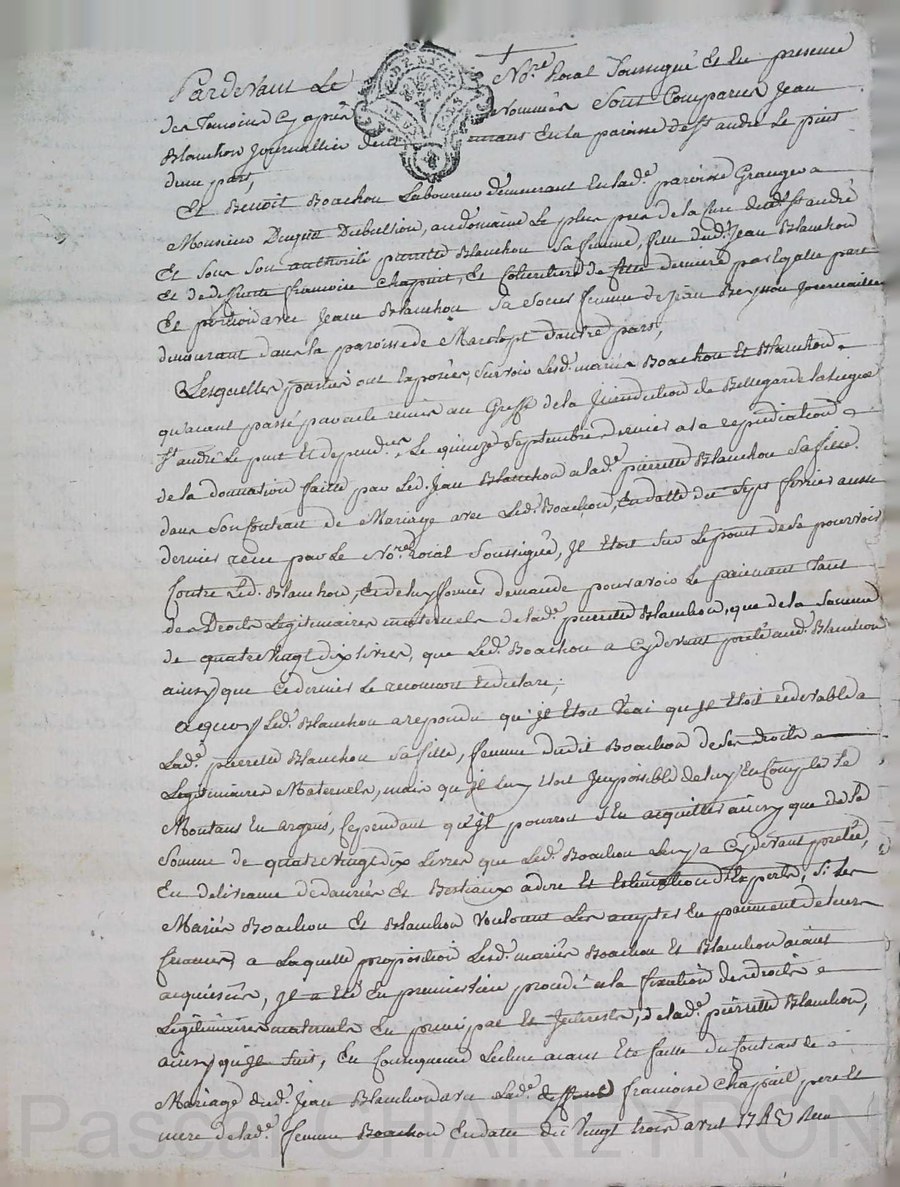 Pardevant Le No.re Roial Soussigné Et En presence
des Temoins Cy après nommés Sont Comparus Jean
Blanchon Journallier demeurant En la paroisse de St andré Le puit
d'une part,
Et Benoit Boachon Laboureur demeurant En lad.e paroisse Granger a
Monsieur Dubession, au domaine Le plus près de la Cure dud.t St andré
Et Sous Son authorité pierrette Blanchon Sa femme, fille dud.t Jean Blanchon
Et de deffunte francoise Chapuit, Et Cohéritiere de cette derniere par Egalle part
Et portion avec Jeane Blanchon Sa Soeur femme de Jean Journallier
demeurant dans la paroisse de Marclopt d'autre part;
Lesquelles parties ont Exposées, Savoir Lesd. mariés Boachon Et Blanchon
qu'aiant passé par acte remis au Greffe de la Jurisdiction de Bellegarde
St andré Le puit Et depend.ces, Le quinze Septembre dernier a la repudiation
de la donnation faitte par Led. Jean Blanchon a lad.e pierrette Blanchon Sa fille
dans Son Contrat de Mariage avec Led. Boachon, En datte du Sept fevrier aussi
dernier recu par Le No.re roial Soussigné, Jl Etoit Sur Le point de Se pourvoir
Contre Led. Blanchon, Et de luy former demande pour avoir Le paiement tant
des Droits Legitimaires maternels de lad.e pierrette Blanchon, que de la Somme
de quatre vingt dix livres, que Led. Boachon a Cy devant preté aud. Blanchon
ainsy que Ce dernier Le reconnoit Et declare;
a quoy Led. Blanchon a repondu qu'jl Etoit Vrai qu'jl Etoit redevable a
Lad.e pierrette Blanchon Sa fille, femme dudit Boachon de Ses droits
Legitimaires Maternels, mais qu'jl luy Etoit Jmpossible de luy En Compter Le
Montant En argent, Cependant qu'jl pourroit S'En acquitter ainsy que de la
Somme de quatre vingt dix Livres que Led. Boachon Luy a Cy devant pretée,
En delivrance de danrées Et Bestiaux a dire Et Estimation d'Experts, Si Les
Mariés Boachon Et Blanchon Vouloient Les accepter En paiement de leurs
Creances, a Laquelle proposition Lesd. mariés Boachon Et Blanchon aiant
acquiescés, Jl a Eté En premier lieu procédé a la fixation des droits
Legitimaires maternels En principal Et Jnterets, de lad.e pierrette Blanchon,
ainsy qu'jl Suit, En Consequence Lecture aiant Eté faitte du Contrat de
Mariage dud. Jean Blanchon avec Lad.e deffunte francoise Chapuit, pere Et
mere de lad.e femme Boachon En datte du Vingt trois avril
Pascal CHAREYRON